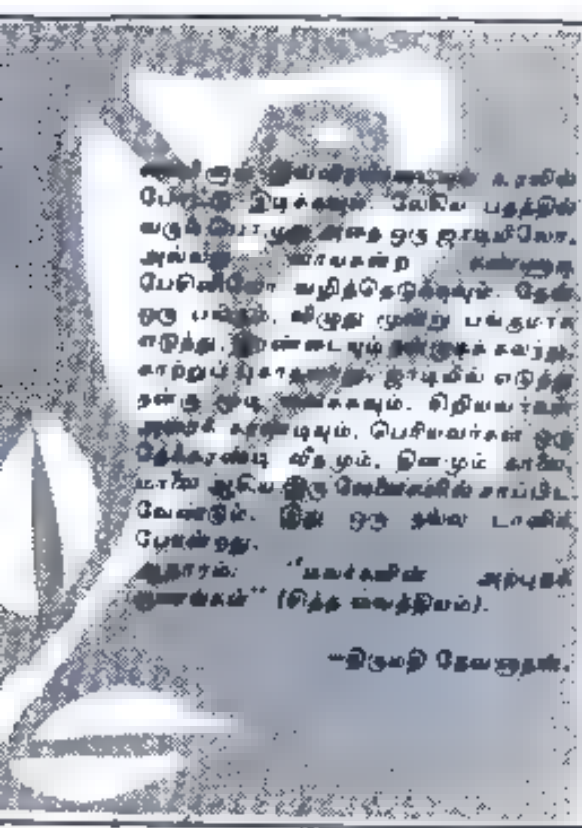 போட்டு இடிக்கவும். லேகிய பதத்தில்
வரும்பொழுது அதை ஒரு ஜாடியிலோ,
அல்லது வாயகன்ற கண்ணாடி
வழித்தெடுக்கவும். தேன்
ஒரு பங்கும், விழுது மூன்று பங்குமாக
எடுத்து, இரண்டையும் நன்றாகக் கலந்து,
காற்றுப் புகாதவாறு ஜாடியில் எடுத்து
நன்கு மூடி வைக்கவும். சிறியவர்கள்
அரைக் கரண்டியும், பெரியவர்கள் ஒரு
தேக்கரண்டி வீதமும், தினமும் காலை,
மாலை ஆகிய இரு வேளைகளில் சாப்பிட
வேண்டும். இது ஒரு நல்ல டானிக்
போன்றது.
ஆதாரம்: "மலர்களின் அற்புதக்
குணங்கள்" (சித்த வைத்தியம்).
–திருமதி தேவஞாதன்.